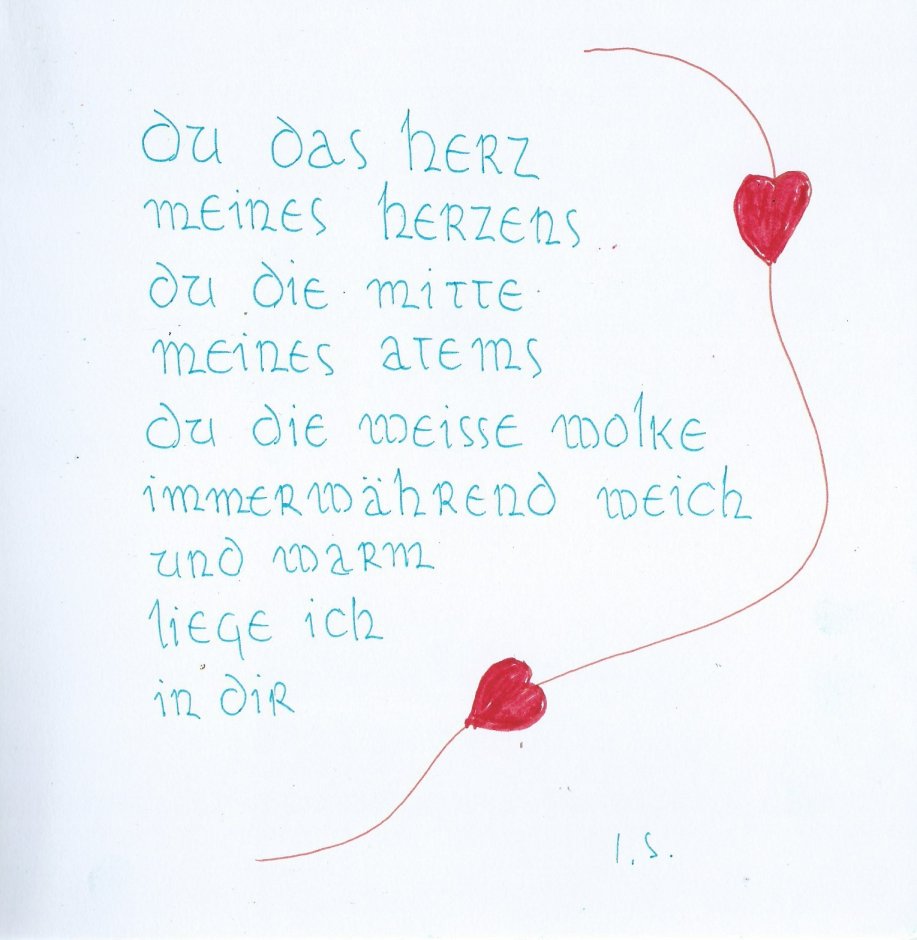 du das herz
meines herzens
du die mitte
meines atems
du die weisse wolke
immerwährend weich
und warm
liege ich
in dir
I. S.